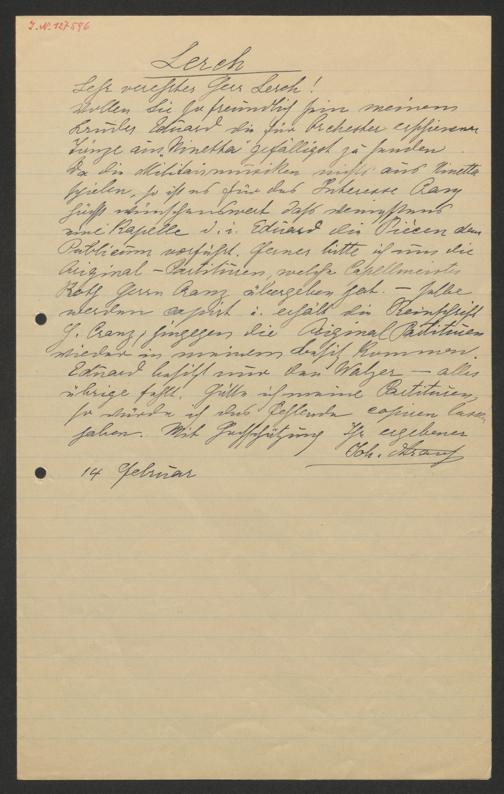 I.N. 127596
Lerch
Sehr verehrter Herr Lerch!
Wollen Sie so freundlich sein meinem
Bruder Eduard die für Orchester erschienenen
Tänze aus "Ninetta" gefälligst zu senden.
Da die Militairmusiken nichts aus Ninetta
spielen, so ist es für das Interesse Cranz
höchst wünschenswert daß wenigstens
eine Kapelle d. i. Eduard die Piecen dem
Publicum vorführt. Ferner bitte ich um die
Original-Partituren, welche Capellmeister
Roth Herrn Cranz übergeben hat. — Selbe
werden copirt i. erhält die Reinschrift
H. Cranz, hingegen die Original Partituren
wieder in meinem Besitz kommen.
Eduard besitzt nur den Walzer — alles
übrige fehlt. Hätte ich meine Partituren,
so würde ich das Fehlende copiren lassen
haben. Mit Hochschätzung Ihr ergebener
Joh. Strauss
14 Februar